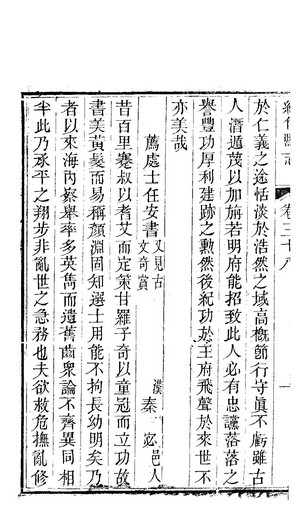 卷三十八
於仁義之途恬淡於浩然之域高槪節行守眞不虧雖古
人潛遁茂以加旃若明府能招致此人必有忠讜落落之
譽豐功厚利建跡之勳然後紀功於王府飛聲於來世不
亦美哉
薦處士任安書 又見古文奇賞
漢 秦宓 邑人
昔百里蹇叔以耆艾而定策甘羅子奇以童冠而立功故
書美黃髮而易稱顏淵固知選士用能不拘長幼明矣乃
者以來海內察舉率多英雋而遺舊齒衆論不齊異同相
半此乃承平之翔步非亂世之急務也夫欲救危撫亂修